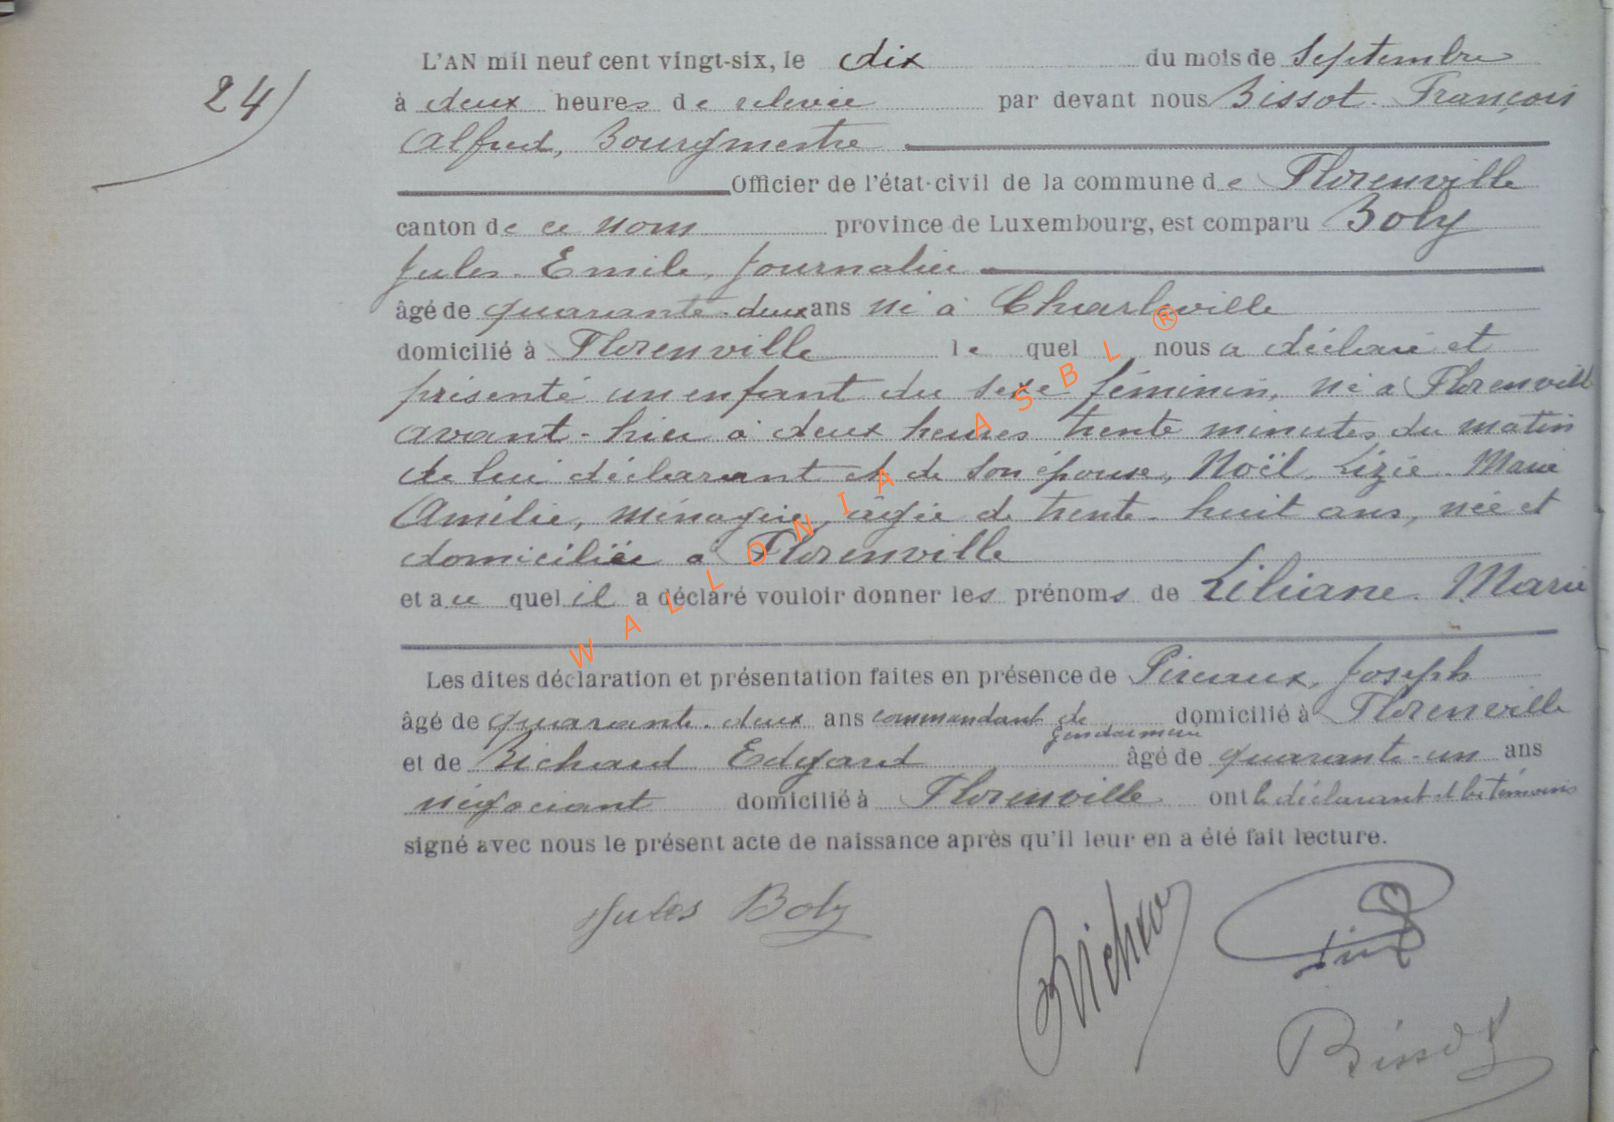 24)
L'AN mil neuf cent vingt-six, le dix du mois de Septembre
à deux heures de relevée par devant nous Bissot François
Alfred, Bourgmestre
Officier de l'état-civil de la commune de Florenville
canton de ce nom province de Luxembourg, est comparu Boly
Jules Emile, Journalier
âgé de quarante-deux ans né à Charleville
domicilié à Florenville le quel nous a déclaré et
présenté un enfant du sexe féminin, né à Florenville
avant-hier à deux heures trente minutes du matin
de lui déclarant et de son épouse, Noël, Lizie Marie
Amélie, ménagère, âgée de trente-huit ans, née et
domiciliée à Florenville
et au quel il a déclaré vouloir donner les prénoms de Liliane Marie
Les dites déclaration et présentation faites en présence de Joseph
âgé de quarante-deux ans commandant de gendarmerie domicilié à Florenville
et de Richard Edgard âgé de quarante-un ans
négociant domicilié à Florenville ont le déclarant et les témoins
signé avec nous le présent acte de naissance après qu'il leur en a été fait lecture.
Jules Boly
Bissot
WALLONIA ASBL ®